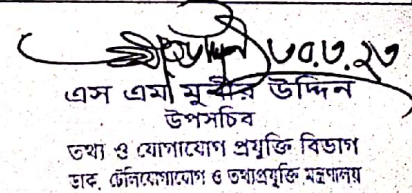 ৩০.৩.২৩
এস এম মুবীর উদ্দিন
উপসচিব
তথ্য ও যোগাযোগ প্রযুক্তি বিভাগ
ডাক, টেলিযোগাযোগ ও তথ্যপ্রযুক্তি মন্ত্রণালয়